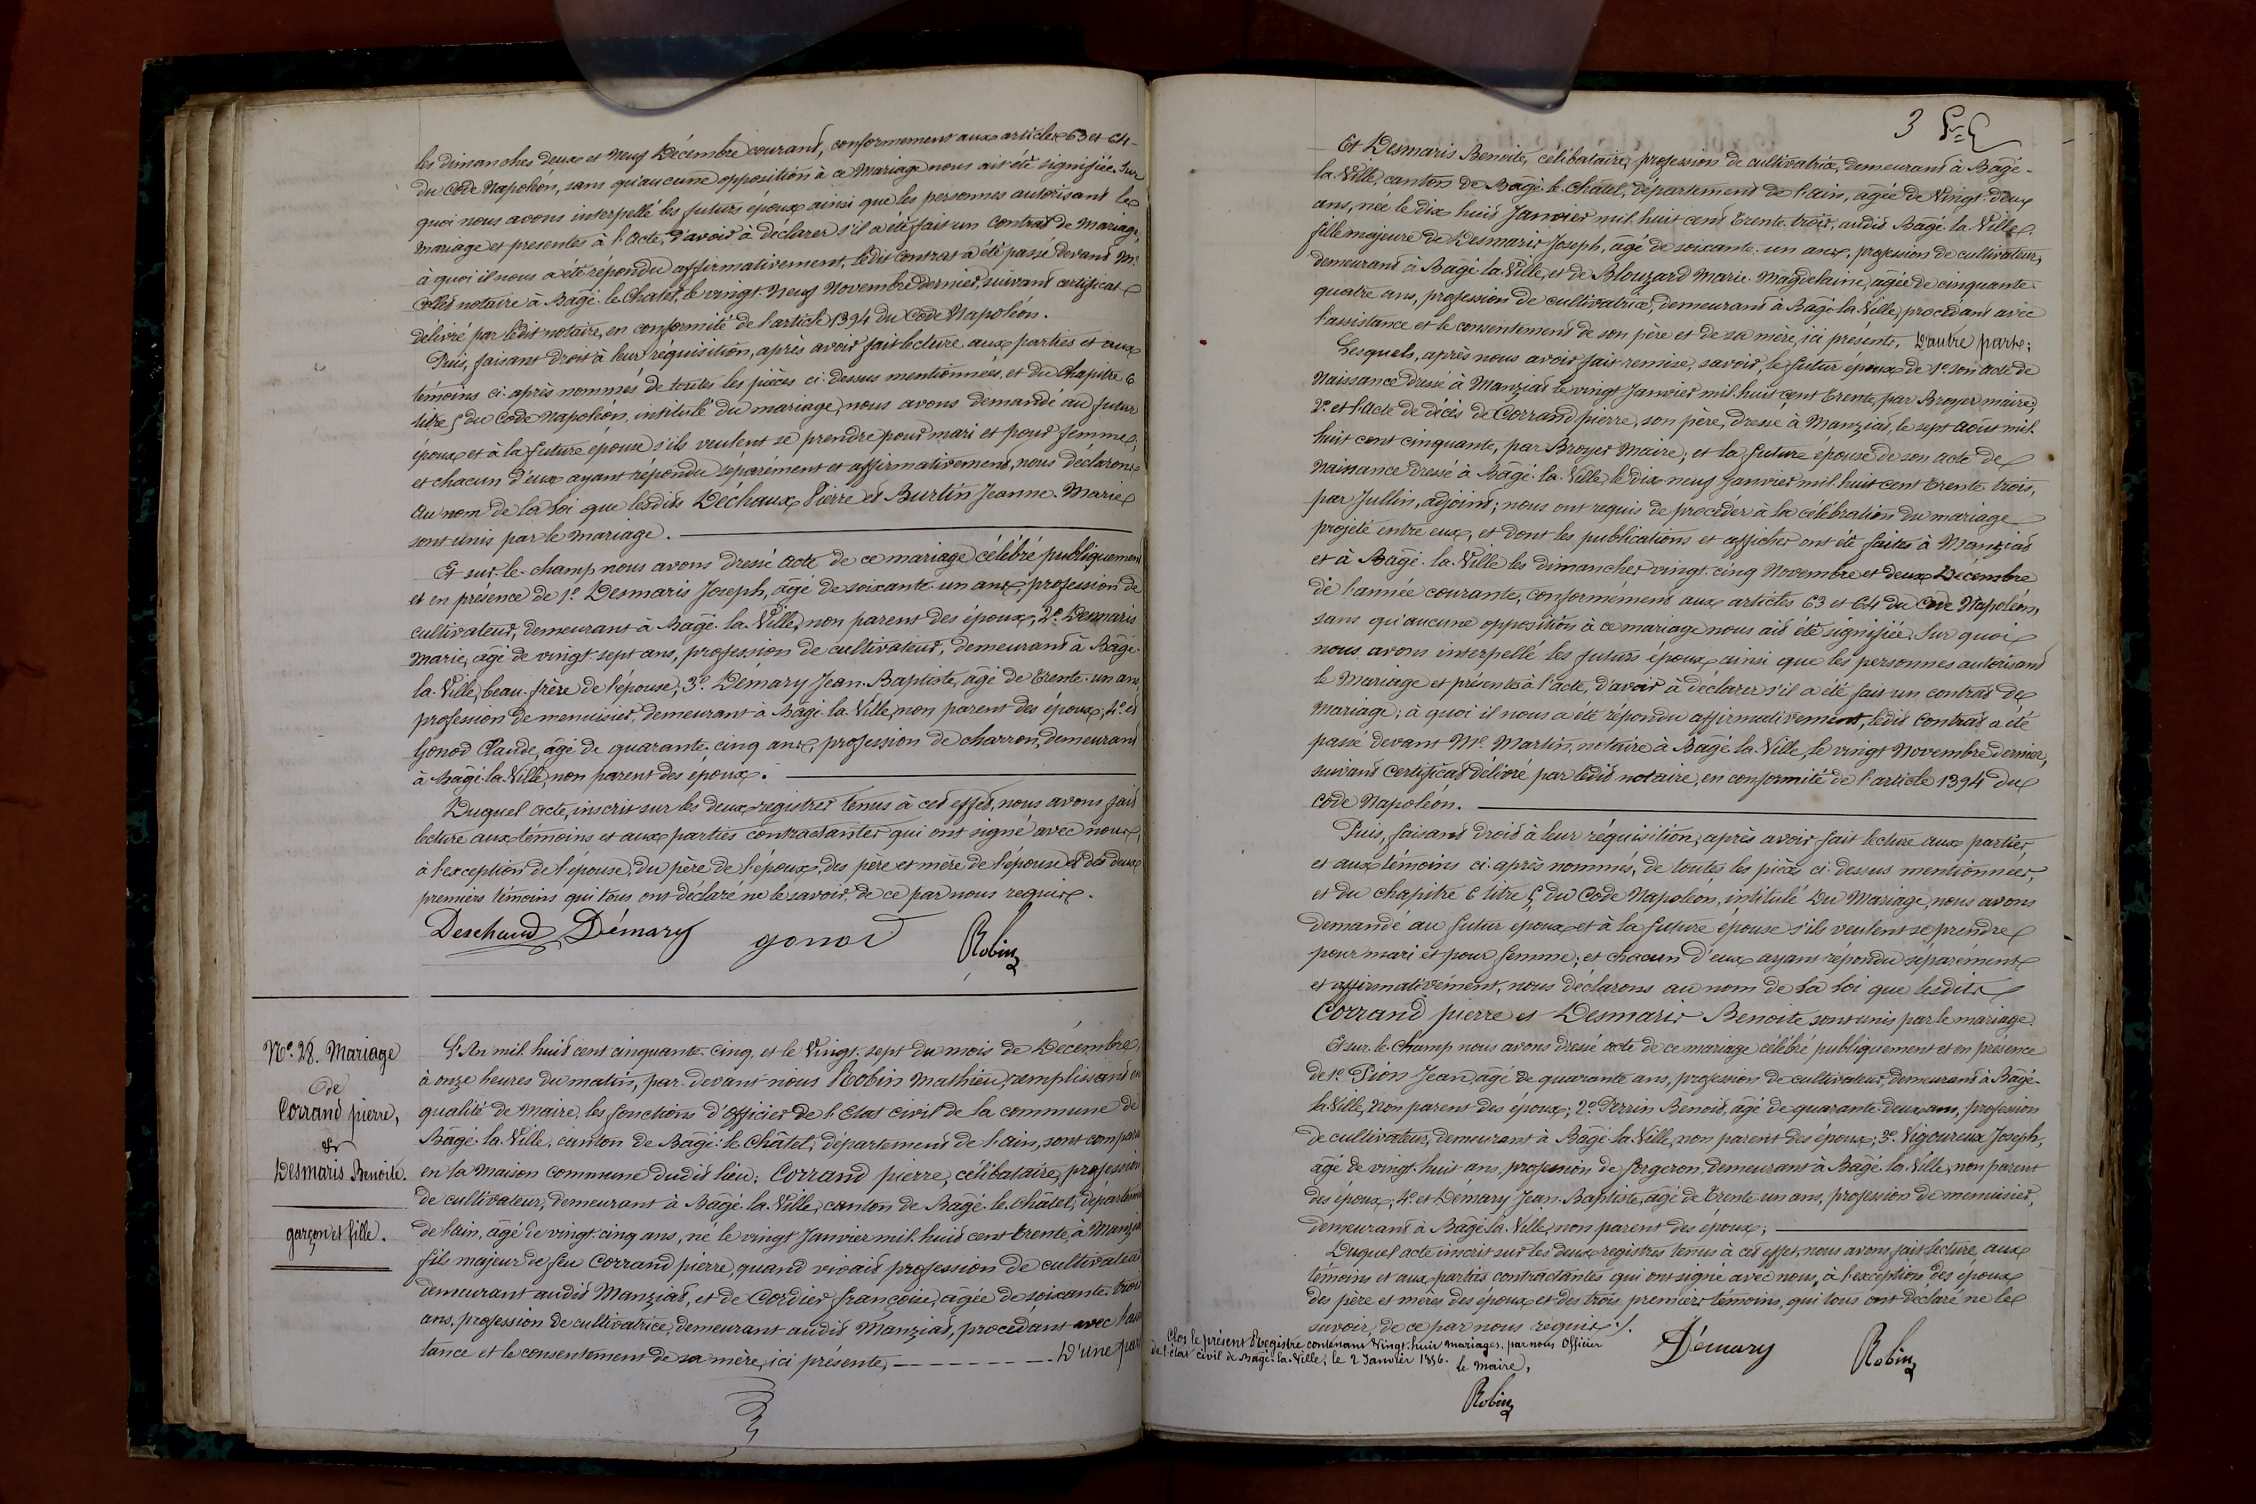 les dimanches deux et neuf Décembre courant, conformement aux articles 63 et 64
du Code Napoléon, sans qu'aucune opposition à ce Mariage nous ait été signifiée. Sur
quoi nous avons interpellé les futurs époux ainsi que les personnes autorisant le
mariage et presentes à l'acte, d'avoir à déclarer s'il a été fait un contrat de mariage,
à quoi il nous a été répondu affirmativement, ledit contrat a été passé devant Me
notaire à Bâgé-le-Chatel, le vingt-neuf Novembre dernier, suivant certificat
délivré par ledit notaire, en conformité de l'article 1394 du Code Napoléon.
Puis, faisant droit à leur réquisition, après avoir fait lecture aux parties et aux
témoins ci-après nommés de toutes les pièces ci-dessus mentionnées, et du chapitre 6
titre 5 du Code Napoléon, intitulé du mariage, nous avons demandé au futur
époux et à la future épouse s'ils veulent se prendre pour mari et pour femme,
et chacun d'eux ayant répondu séparément et affirmativement, nous déclarons
au nom de la loi que lesdits Déchaux Pierre et Burtin Jeanne-Marie
sont unis par le mariage.
Et sur-le-champ nous avons dressé acte de ce mariage célébré publiquement
et en présence de 1º Desmaris Joseph, âgé de soixante-un ans, profession de
cultivateur, demeurant à Bâgé-la-Ville, non parent des époux; 2º Desmaris
Marie, âgé de vingt-sept ans, profession de cultivateur, demeurant à Bâgé-
la-Ville, beau-frère de l'épouse; 3º Démary Jean-Baptiste, âgé de trente-un ans
profession de menuisier, demeurant à Bâgé-la-Ville, non parent des époux; 4º et
Gonod Claude, âgé de quarante-cinq ans, profession de charron, demeurant
à Bâgé-la-Ville, non parent des époux.
Duquel acte, inscrit sur les deux registres tenus à cet effet, nous avons fait
lecture aux témoins et aux parties contractantes qui ont signé avec nous,
à l'exception de l'épouse, du père de l'époux, des père et mère de l'épouse et des deux
premiers témoins qui tous ont déclaré ne le savoir, de ce par nous requis.
Deschaud Démary gonod Robin
Nº 28. Mariage
de
Corrand pierre,
&
Desmaris Benoite.
garçon et fille.
L'An mil huit cent cinquante-cinq, et le Vingt-sept du mois de Décembre,
à onze heures du matin, par-devant nous Robin Mathieu, remplissant en
qualité de maire, les fonctions d'officier de l'Etat civil de la commune de
Bâgé-la-Ville, canton de Bâgé-le-Châtel, département de l'ain, sont comparu
en la maison commune dudit lieu; Corrand pierre, célibataire, profession
de cultivateur, demeurant à Bâgé-la-Ville, canton de Bâgé-le-Châtel, département
de l'ain, âgé de vingt-cinq ans, né le vingt Janvier mil huit cent trente, à Manziat
fils majeur de feu Corrand pierre, quand vivait profession de cultivateur
demeurant audit Manziat, et de Cordier françoise, agée de soixante-trois
ans, profession de cultivatrice, demeurant audit Manziat, procédant avec l'assis
tance et le consentement de sa mère, ici présente, D'une part
3
Et Desmaris Benoite, célibataire, profession de cultivatrice, demeurant à Bâgé-
la-Ville, canton de Bâgé-le-Châtel, département de l'ain, âgée de Vingt-deux
ans, née le dix-huit Janvier mil huit cent trente-trois, audit Bâgé-la-Ville,
fille majeure de Desmaris Joseph, âgé de soixante-un ans, profession de cultivateur,
demeurant à Bâgé-la-Ville, et de Blouzard Marie-Magdelaine, âgée de cinquante-
quatre ans, profession de cultivatrice, demeurant à Bâgé-la-Ville, procédant avec
l'assistance et le consentement de son père et de sa mère, ici présents, D'autre part;
Lesquels, après nous avoir fait remise, savoir, le futur époux de 1º son acte de
Naissance dressé à Manziat le vingt Janvier mil huit cent trente, par Broyer maire;
2º et l'acte de décès de Corrand pierre, son père, dressé à Manziat, le sept août mil
huit cent cinquante, par Broyer Maire; et la future épouse de son acte de
Naissance dressé à Bâgé-la-Ville le dix-neuf Janvier mil huit cent trente-trois,
par Jullin, adjoint; nous ont requis de procéder à la célébration du mariage
projeté entre eux, et dont les publications et affiches ont été faites à Manziat
et à Bâgé-la-Ville les dimanches vingt-cinq Novembre et deux Décembre
de l'année courante, conformement aux articles 63 et 64 du Code Napoléon,
sans qu'aucune opposition à ce mariage nous ait été signifiée. Sur quoi
nous avons interpellé les futurs époux ainsi que les personnes autorisant
le Mariage et présentes à l'acte, d'avoir à déclarer s'il a été fait un contrat de
Mariage; à quoi il nous a été répondu affirmativement, ledit contrat a été
passé devant Me Martin, notaire à Bâgé-la-Ville, le vingt Novembre dernier,
suivant certificat délivré par ledit notaire, en conformité de l'article 1394 du
Code Napoléon.
Puis, faisant droit à leur réquisition, après avoir fait lecture aux parties
et aux témoins ci-après nommés, de toutes les pièces ci-dessus mentionnées,
et du chapitre 6 titre 5 du Code Napoléon, intitulé Du Mariage, nous avons
demandé au futur époux et à la future épouse s'ils veulent se prendre
pour mari et pour femme; et chacun d'eux ayant répondu séparément
et affirmativement, nous déclarons au nom de la loi que lesdits
Corrand pierre et Desmaris Benoite sont unis par le mariage.
Et sur-le-champ nous avons dressé acte de ce mariage célébré publiquement et en présence
de 1º Pion Jean, âgé de quarante ans, profession de cultivateur, demeurant à Bâgé-
la-Ville, non parent des époux; 2º Perrin Benoit, âgé de quarante-deux ans, profession
de cultivateur, demeurant à Bâgé-la-Ville, non parent des époux; 3º Vigoureux Joseph,
âgé de vingt-huit ans, profession de forgeron, demeurant à Bâgé-la-Ville, non parent
des époux; 4º et Démary Jean-Baptiste, âgé de trente-un ans, profession de menuisier,
demeurant à Bâgé-la-Ville, non parent des époux;
Duquel acte inscrit sur les deux registres tenus à cet effet, nous avons fait lecture aux
témoins et aux parties contractantes qui ont signé avec nous, à l'exception des époux
des père et mères des époux et des trois premiers témoins, qui tous ont déclaré ne le
savoir, de ce par nous requis./.
Démary Robin
Clos le présent Registre contenant Vingt-huit mariages, par nous Officier
de l'état civil de Bâgé-la-Ville, le 2 Janvier 1856.
le Maire,
Robin